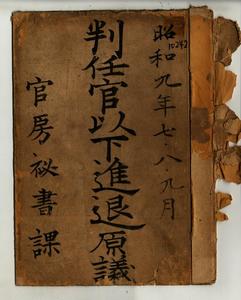 昭和九年七・八・九月
10242
判任官以下進退原議
官房秘書課